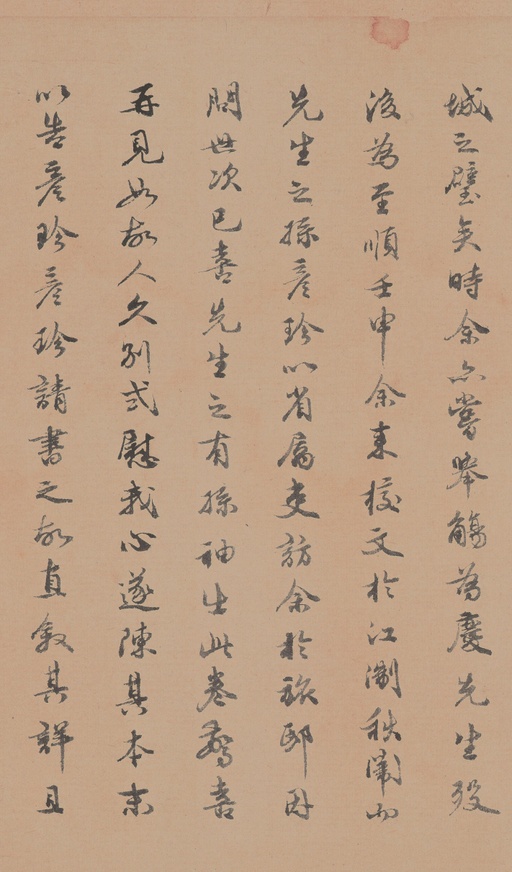 城之璧矣時余亦嘗舉觴為慶先生歿
後為至順壬申余来校文於江淛秋闈而
先生之孫彦珍以省屬吏訪余於旅邸因
問世次已喜先生之有孫袖出此卷驚喜
再見如故人久別式慰我心遂陳其本末
以告彦珍彦珍請書之故直叙其詳且